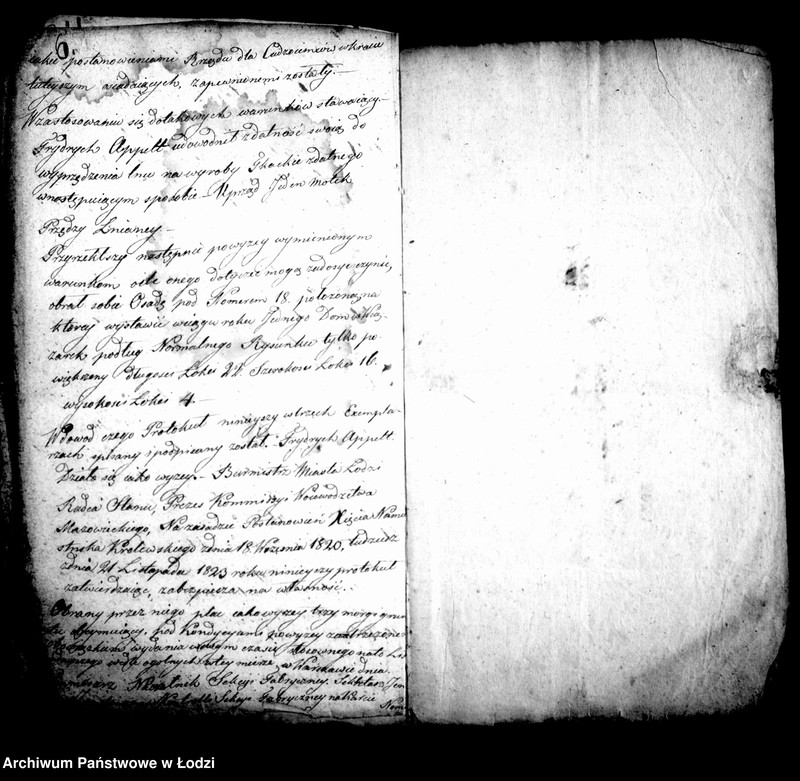 6.
jakie postanowieniami Rządu dla Cudzoziemców w kraiu
tuteyszym osiadaiących, zapewnionemi zostały.—
W zastosowaniu się do takowych warunków stawaiący.
Frydrych Appelt udowodnił zdatność swoią do
wyprzędzenia lnu na wyroby Tkackie zdatnego
w następuiącym sposobie — Uprządł Jeden motek
Przędzy Lnianey—
Przyrzekłszy następnie powyzey wymienionym
warunkom ile onego dotyczeć mogą zadosyć uczynić,
obrał sobie Osadę pod Numerem 18. połozoną na
ktorey wystawić w ciągu roku Jednego Dom
podług Normalnego Rysunku tylko po
większony długości Łokci 22. Szerokości Łokci 16.
wysokości Łokci 4.—
W dowod czego Protokuł ninieyszy w trzech Exempla-
rzach spisany i podpisany został. Frydrych Appelt.
Działo się iako wyzey.— Burmistrz Miasta Łodzi
Radca Stanu, Prezes Kommissyi Woiewodztwa
Mazowieckiego, Na zasadzie Postanowień Xięcia Name
stnika Krolewskiego z dnia 18 Września 1820, tudziesz
z dnia 21 Listopada 1823 roku ninieyszy protokuł
zatwierdzaiąc, zabezpiecza na własność.
Obrany przez niego plac iako wyzey trzy morgi grun
tu obeymuiący, pod Kondycyami powyzey zastrzezonemi
wydania w swym czasie stosownego na to
w Warszawie dnia
Naczelnik Sekcyi Fabryczney. Sekretarz Jen
Sekcyi Fabryczney na karcie
Archiwum Państwowe w Łodzi